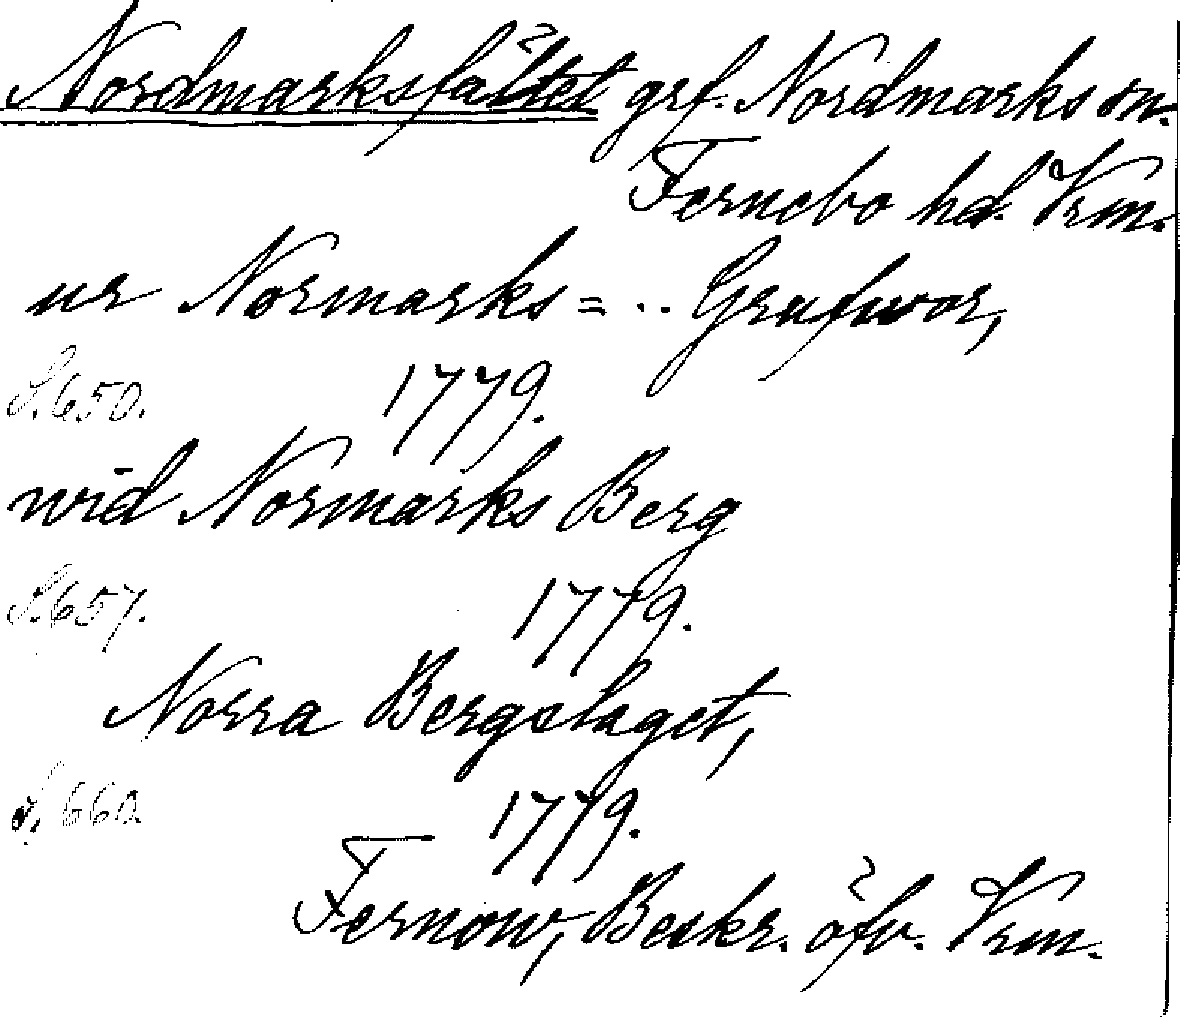 Nordmarksfältet grf. Nordmarks sn.
Fernebo hd. Vrm.
ur Normarks= .. Grufwor,
S. 650. 1779.
wid Normarks Berg
S. 657. 1779.
Norra Bergslaget,
S. 660. 1779.
Fernow, Beskr. öfv. Vrm.